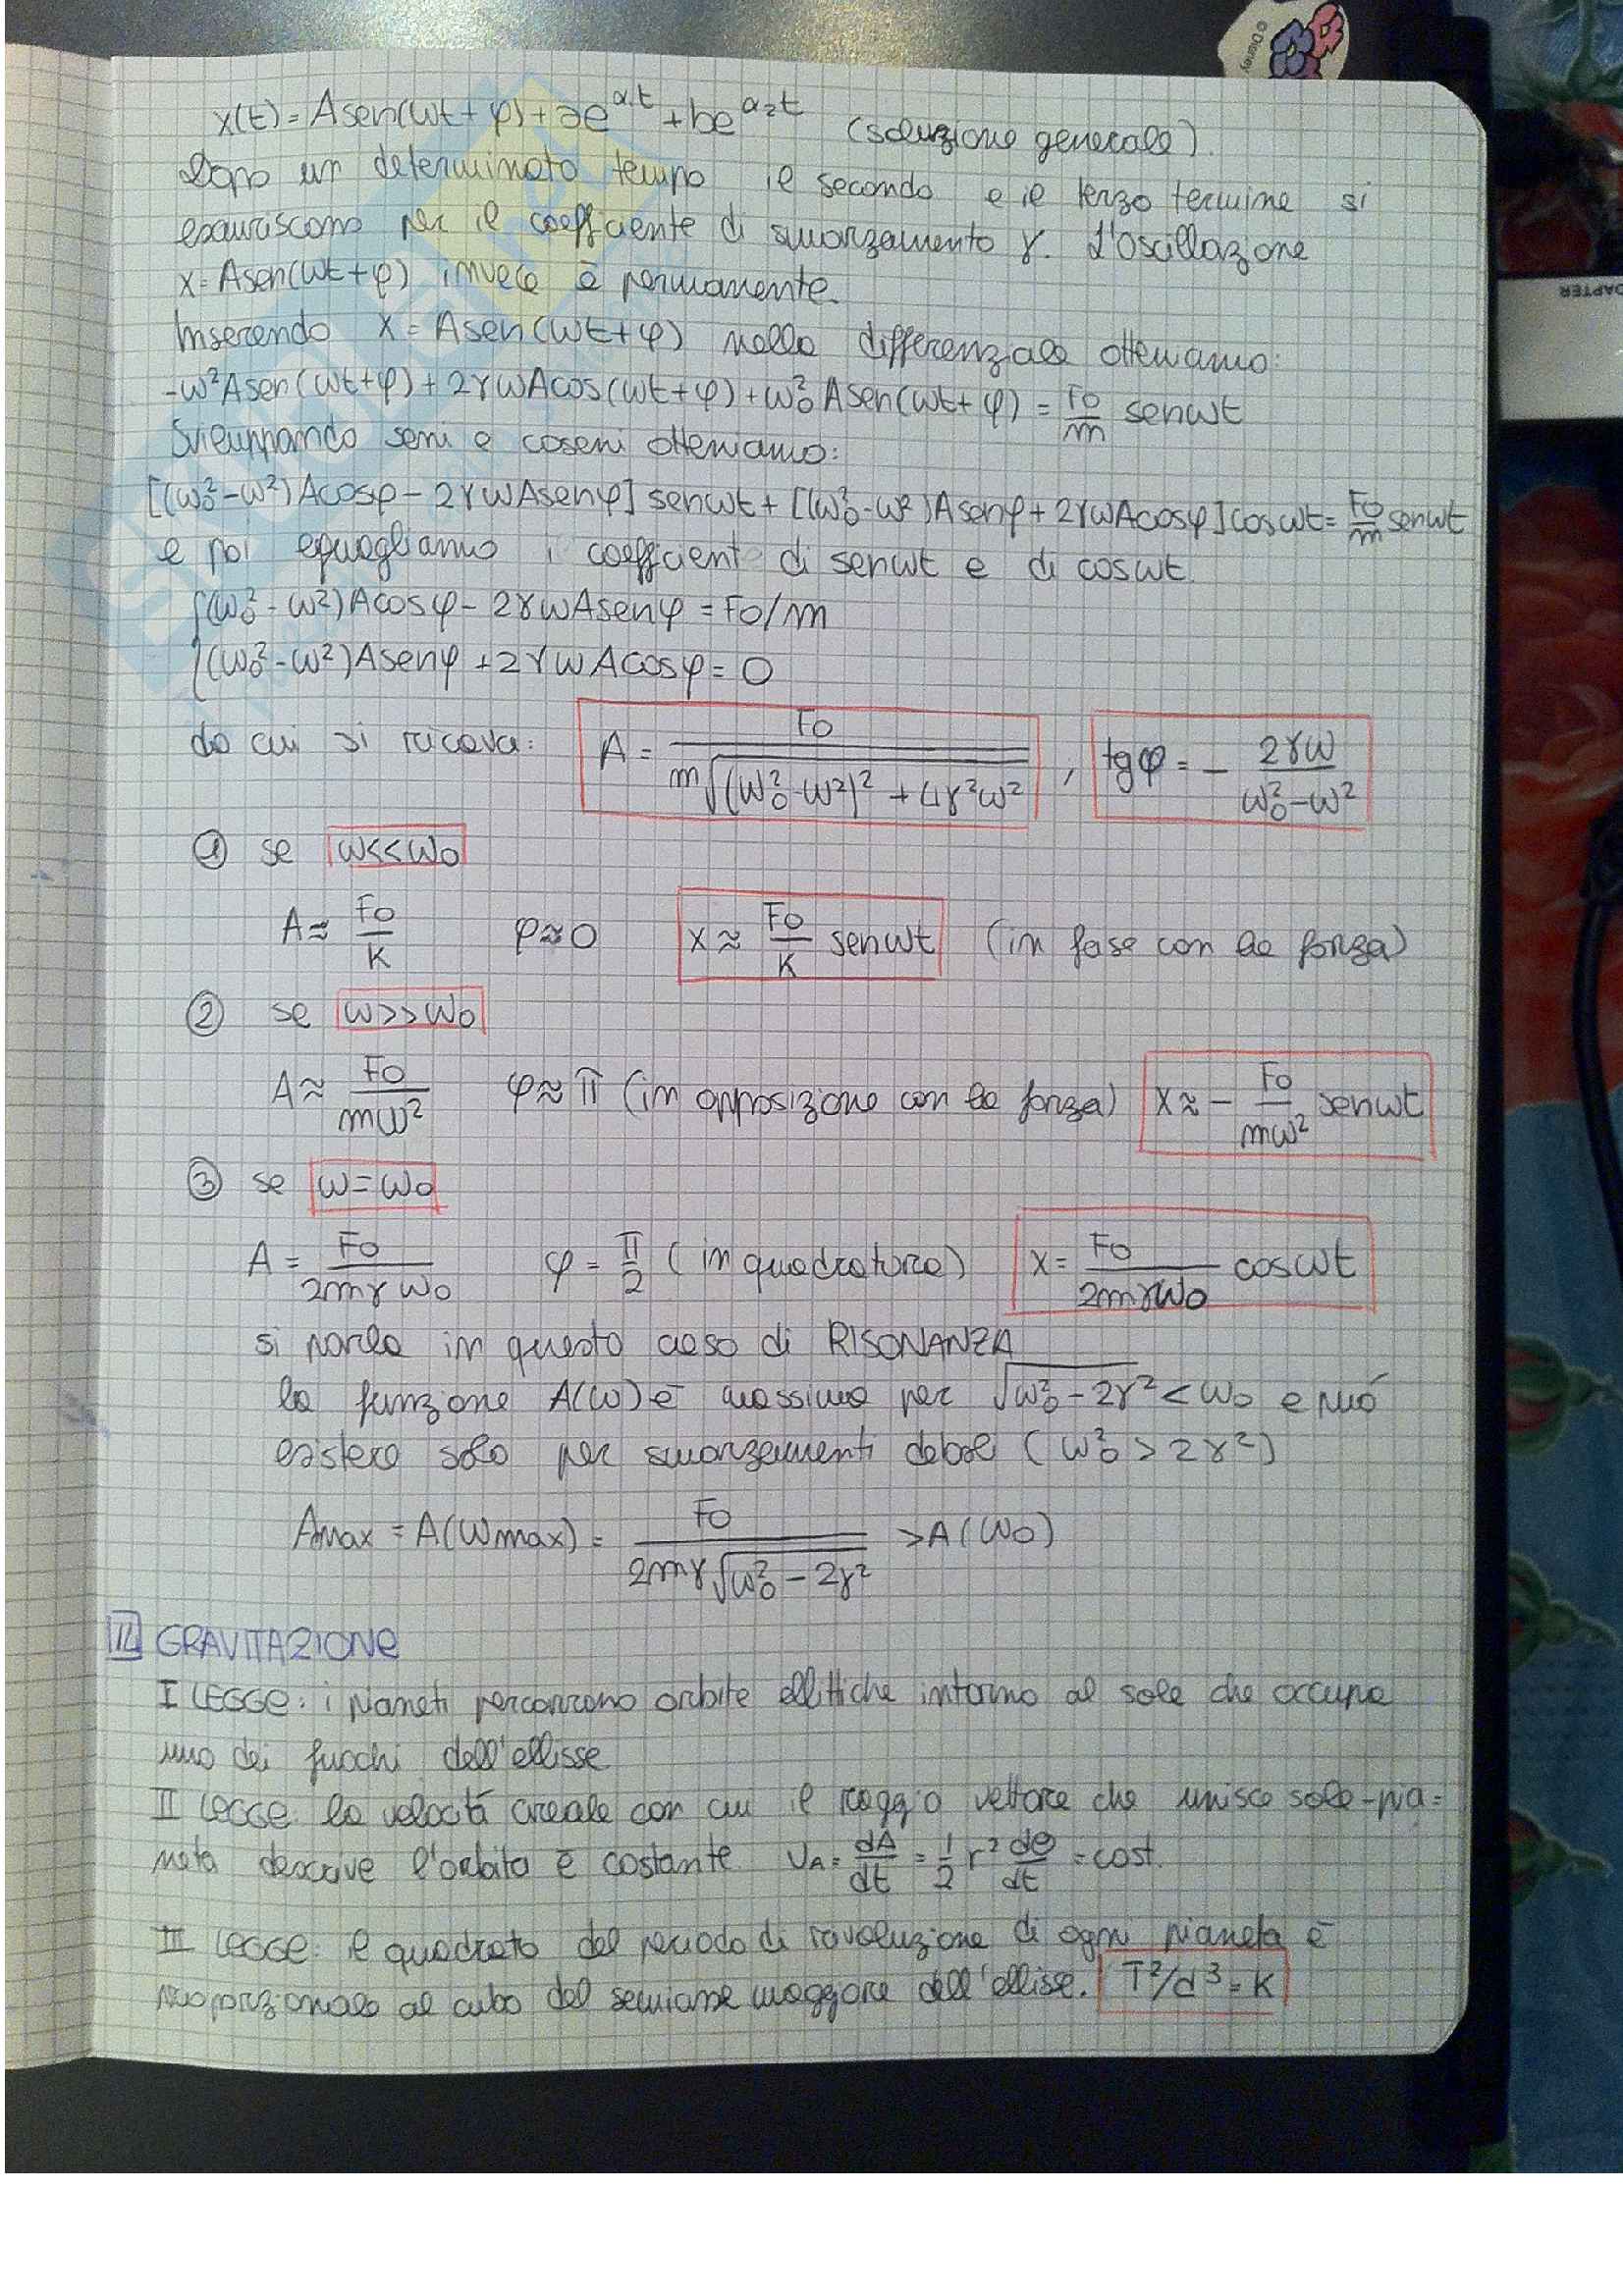 x(t) = Asen(ωt + φ) + ae^α₁t + be^α₂t (soluzione generale).
Dopo un determinato tempo il secondo e il terzo termine si
esauriscono per il coefficiente di smorzamento γ. L'oscillazione
x = Asen(ωt+φ) invece è permanente.
Inserendo x = Asen(ωt+φ) nella differenziale otteniamo:
-ω²Asen(ωt+φ) + 2γωAcos(ωt+φ) + ω₀²Asen(ωt+φ) = F₀/m senωt
Sviluppando seni e coseni otteniamo:
[(ω₀²-ω²)Acosφ - 2γωAsenφ] senωt + [(ω₀²-ω²)Asenφ + 2γωAcosφ] cosωt = F₀/m senωt
e poi eguagliamo i coefficienti di senωt e di cosωt.
{(ω₀² - ω²)Acosφ - 2γωAsenφ = F₀/m
{(ω₀² - ω²)Asenφ + 2γωAcosφ = 0
da cui si ricava: A = F₀ / m√((ω₀²-ω²)² + 4γ²ω²) , tgφ = - 2γω / ω₀²-ω²
① se ω<<ω₀
A ≈ F₀/K φ≈0 x ≈ F₀/K senωt (in fase con la forza)
② se ω>>ω₀
A ≈ F₀/mω² φ≈π (in opposizione con la forza) x ≈ - F₀/mω² senωt
③ se ω=ω₀
A = F₀/2mγω₀ φ = π/2 (in quadratura) x = F₀/2mγω₀ cosωt
si parla in questo caso di RISONANZA
la funzione A(ω) è massima per √(ω₀² - 2γ²) < ω₀ e può
esistere solo per smorzamenti deboli (ω₀² > 2γ²)
Amax = A(ωmax) = F₀ / 2mγ√(ω₀² - 2γ²) > A(ω₀)
GRAVITAZIONE
I LEGGE: i pianeti percorrono orbite ellittiche intorno al sole che occupa
uno dei fuochi dell'ellisse
II LEGGE: la velocità areale con cui il raggio vettore che unisce sole-pia=
neta descrive l'orbita è costante. VA = dA/dt = 1/2 r² dθ/dt = cost.
III LEGGE: il quadrato del periodo di rivoluzione di ogni pianeta è
proporzionale al cubo del semiasse maggiore dell'ellisse. T²/d³ = K
© Disney
DAPTER